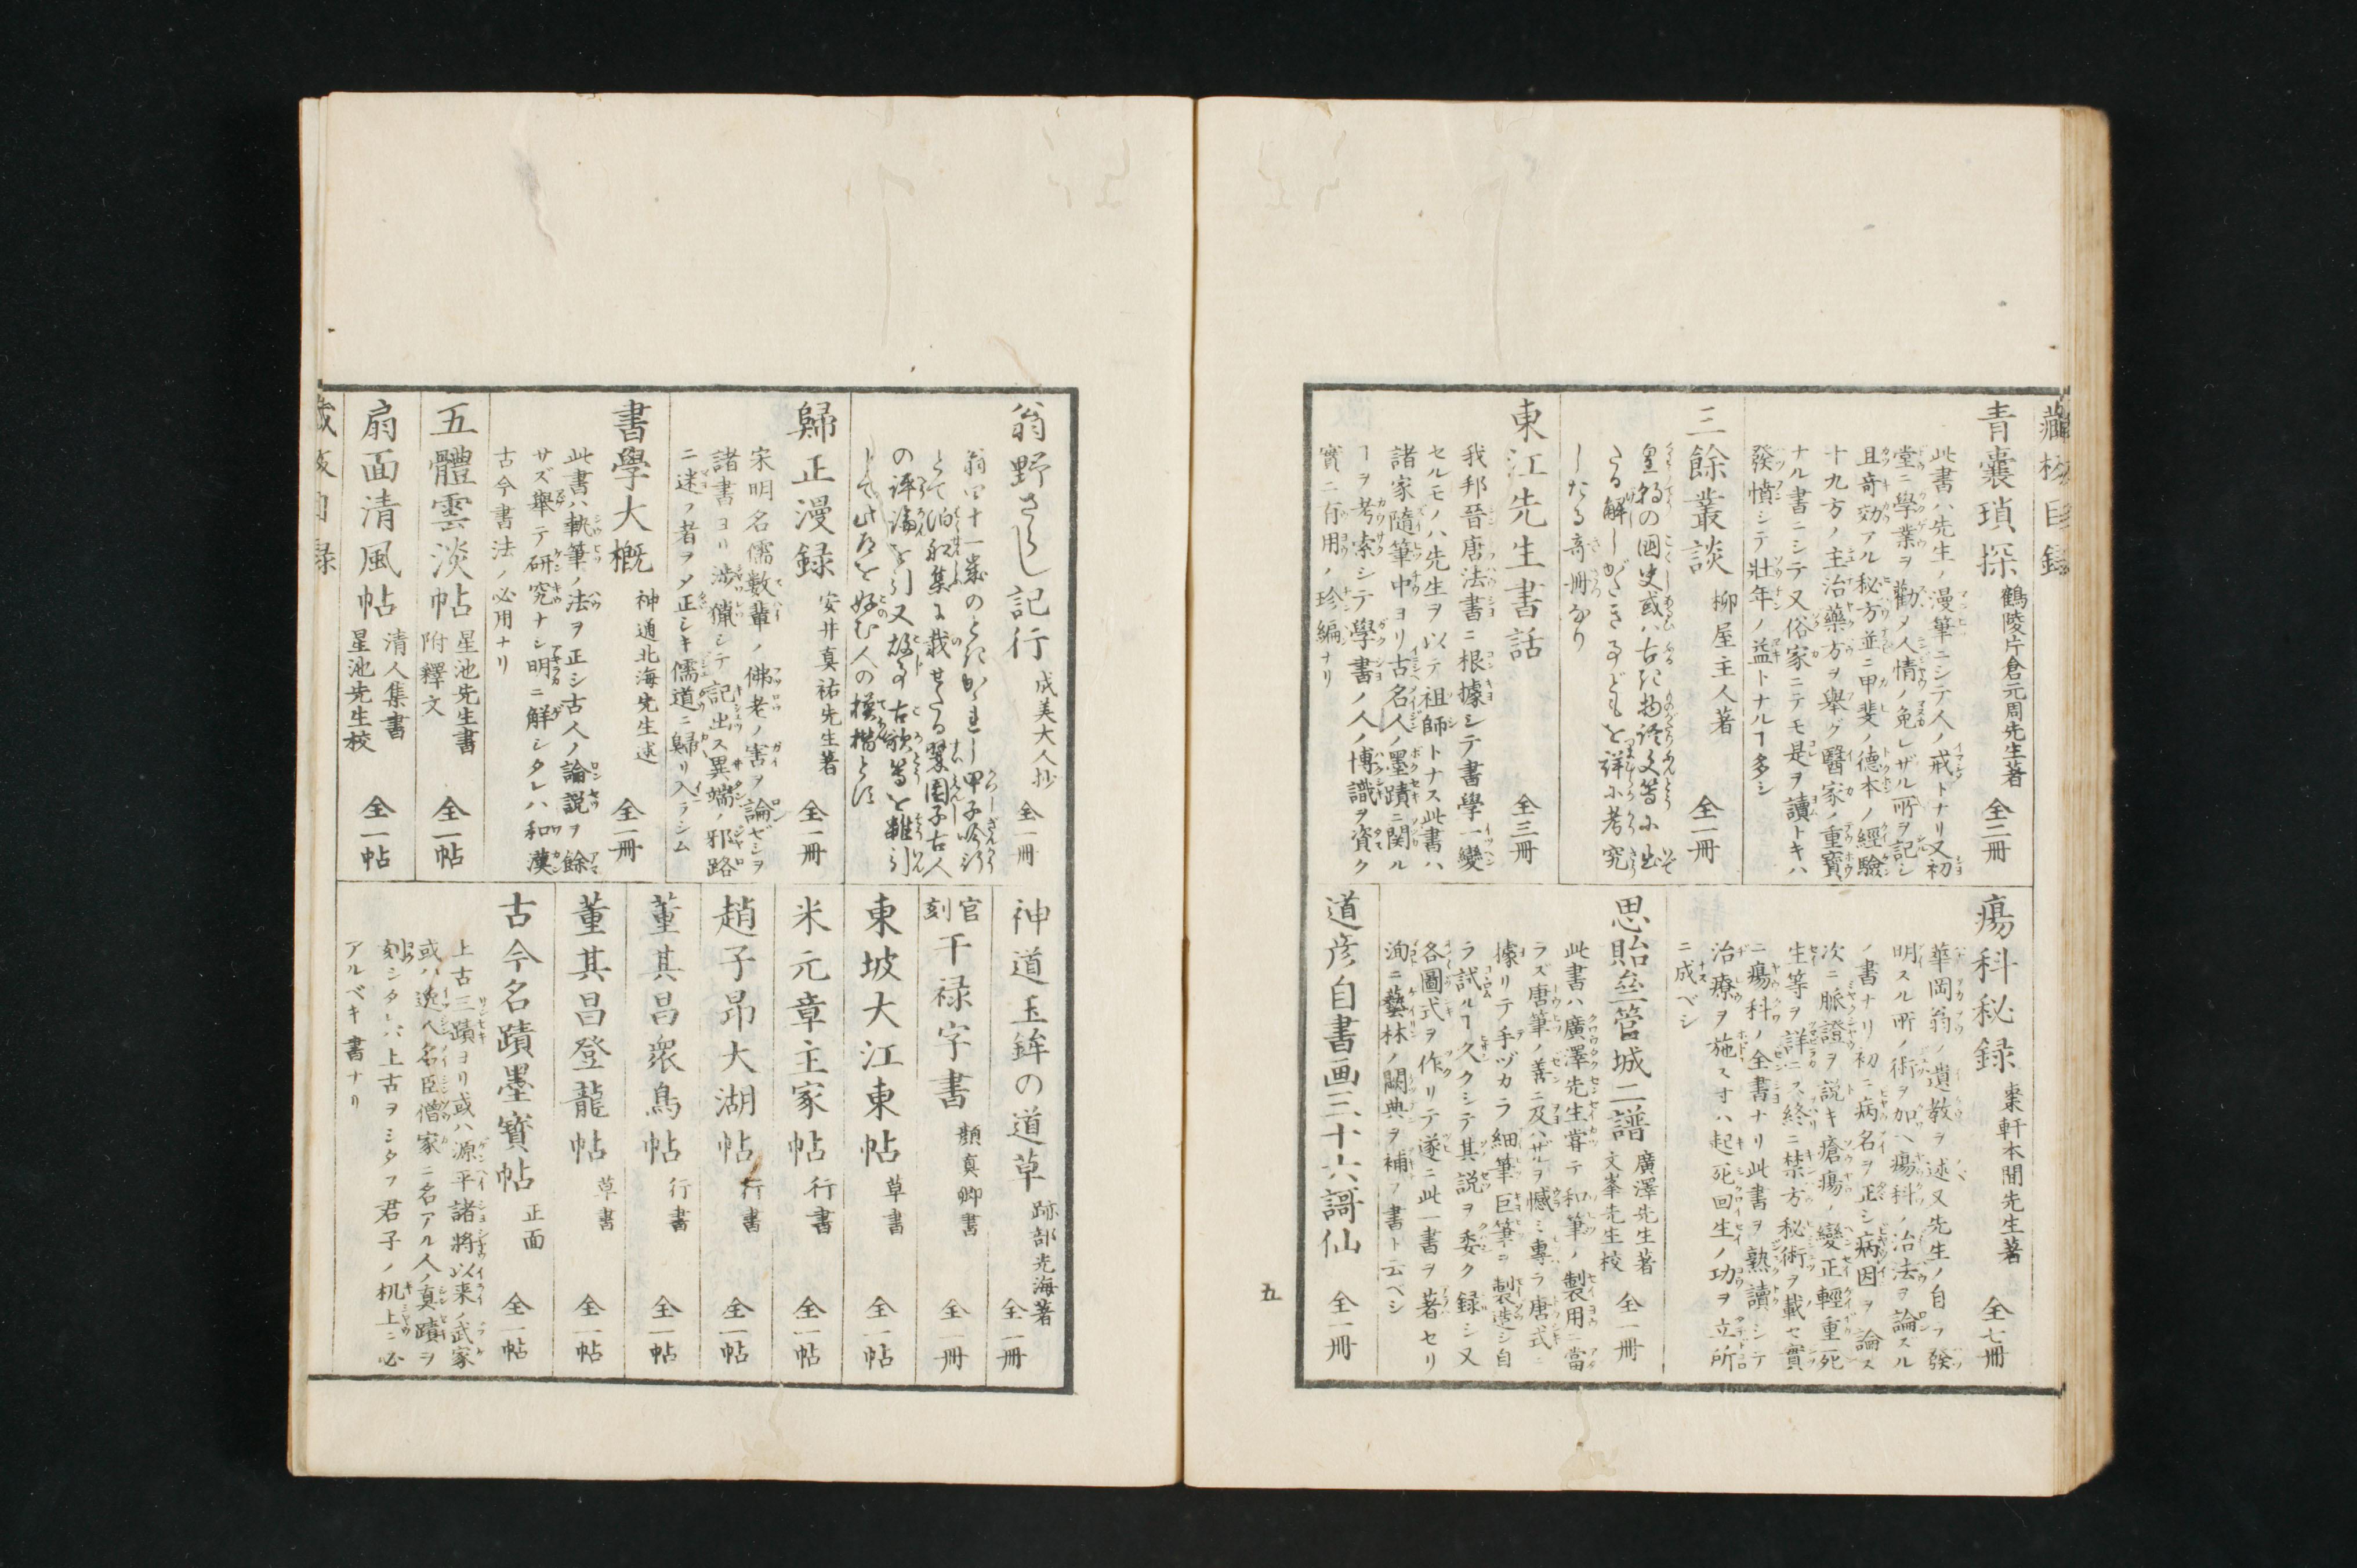 藏板目録
青嚢瑣探 鶴陵片倉元周先生著 全二冊
此書ハ先生ノ漫筆ニシテ人ノ戒トナリ又初
堂ニ學業ヲ勸メ人情ノ免レザル所ヲ記シ
且奇効アル秘方並ニ甲斐ノ德本ノ經驗
十九方ノ主治藥方ヲ舉グ醫家ノ重寶
ナル書ニシテ又俗家ニテモ是ヲ讀トキハ
發憤シテ壯年ノ益トナルヿ多シ
三餘叢談 柳屋主人著 全一冊
皇朝の國史或ハ古き物語文等に出
たる解しがたき事どもを詳に考究
したる奇冊なり
東江先生書話 全三冊
我邦晉唐法書ニ根據シテ書學一變
セルモノハ先生ヲ以テ祖師トナス此書ハ
諸家隨筆中ヨリ古名人ノ墨蹟ニ関ル
ヿヲ考索シテ學書ノ人ノ博識ヲ資ク
實ニ有用ノ珍編ナリ
瘍科秘録 棗軒本間先生著 全七冊
華岡翁ノ遺教ヲ述又先生ノ自ラ發
明スル所ノ術ヲ加ヘ瘍科ノ治法ヲ論ズル
ノ書ナリ初ニ病名ヲ正シ病因ヲ論ス
次ニ脈證ヲ説キ瘡瘍ノ變正輕重死
生等ヲ詳ニス終ニ禁方秘術ヲ載セ實
ニ瘍科ノ全書ナリ此書ヲ熟讀シテ
治療ヲ施ス寸ハ起死回生ノ功ヲ立所
ニ成ベシ
思貽齋管城二譜 廣澤先生著 文峯先生校 全一冊
此書ハ廣澤先生甞テ和筆ノ製用ニ當
ラズ唐筆ノ善ニ及ハザルヲ憾ミ專ラ唐式ニ
據リテ手ヅカラ細筆巨筆ヲ製造シ自
ラ試ルヿ久クシテ其説ヲ委ク録シ又
各圖式ヲ作リテ遂ニ此一書ヲ著セリ
洵ニ藝林ノ闕典ヲ補フ書ト云ベシ
道彦自書画三十六謌仙 全一冊
五
翁野ざらし記行 成美大人抄 全一冊
翁四十一歳のとき
とて泊船集に載せたる翠園子古人
の評論を引又故事古歌等を雜引
して此道を好む人の模楷とす
歸正漫録 安井真祐先生著 全一冊
宋明名儒數輩ノ佛老ノ害ヲ論ゼシヲ
諸書ヨリ渉獵シテ記出ス異端ノ邪路
ニ迷フ者ヲメ正シキ儒道ニ歸リ入ラシム
書學大概 神通北海先生述 全一冊
此書ハ執筆ノ法ヲ正シ古人ノ論説ヲ餘
サズ舉テ研究ナシ明ニ解シタレハ和漢
古今書法ノ必用ナリ
五體雲淡帖 星池先生書 附釋文 全一帖
扇面清風帖 清人集書 星池先生校 全一帖
神道玉鉾の道草 跡部光海著 全一冊
官刻 干禄字書 顏真卿書 全一冊
東坡大江東帖 草書 全一帖
米元章主家帖 行書 全一帖
趙子昂大湖帖 行書 全一帖
董其昌衆鳥帖 行書 全一帖
董其昌登龍帖 草書 全一帖
古今名蹟墨寳帖 正面 全一帖
上古三蹟ヨリ或ハ源平諸將以来ノ武家
或ハ逸人名臣僧家ニ名アル人ノ真蹟ヲ
刻シタレバ上古ヲシタフ君子ノ机上ニ必
アルベキ書ナリ